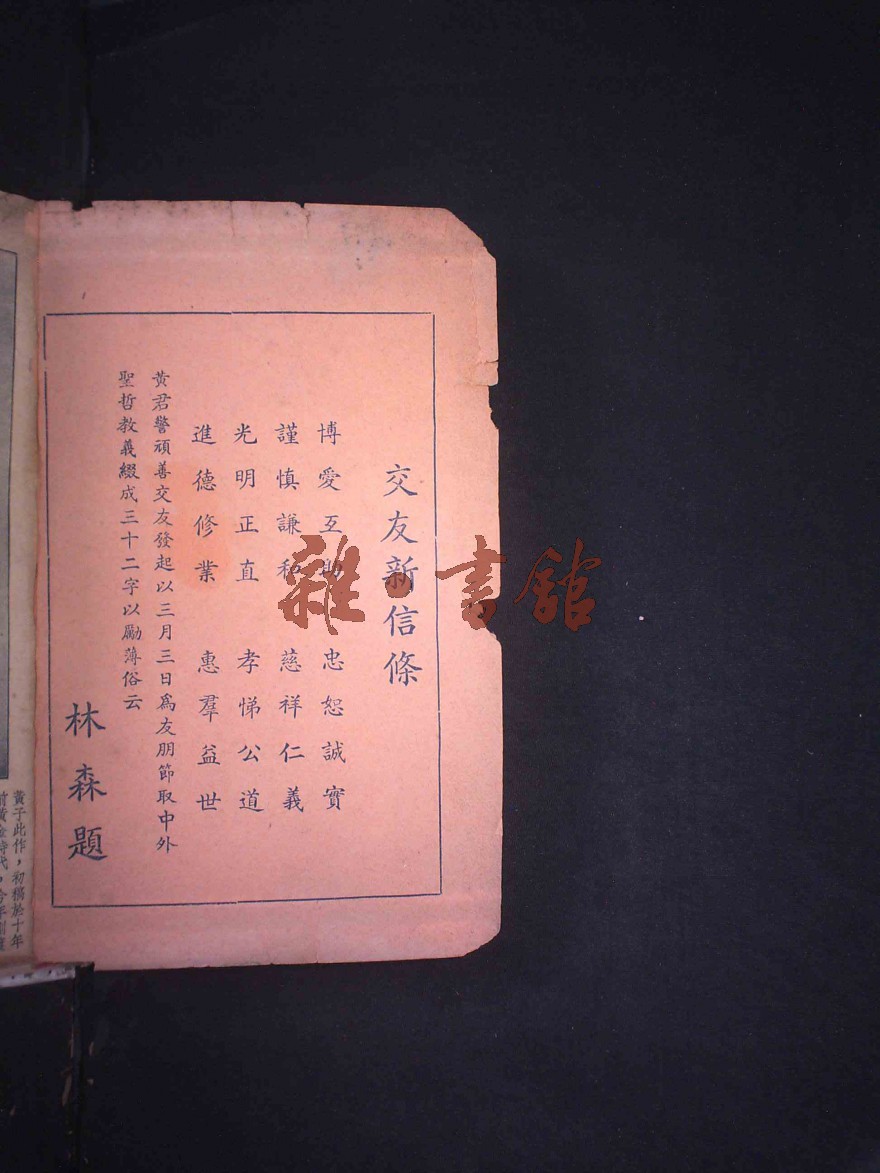 交友新信條
博愛互助　忠恕誠實
謹慎謙和　慈祥仁義
光明正直　孝悌公道
進德修業　惠羣益世
黃君警頑善交友發起以三月三日爲友朋節取中外
聖哲教義綴成三十二字以勵薄俗云
林森題
黃子此作，初稿於十年
前黃金時代，今年
雜·書館